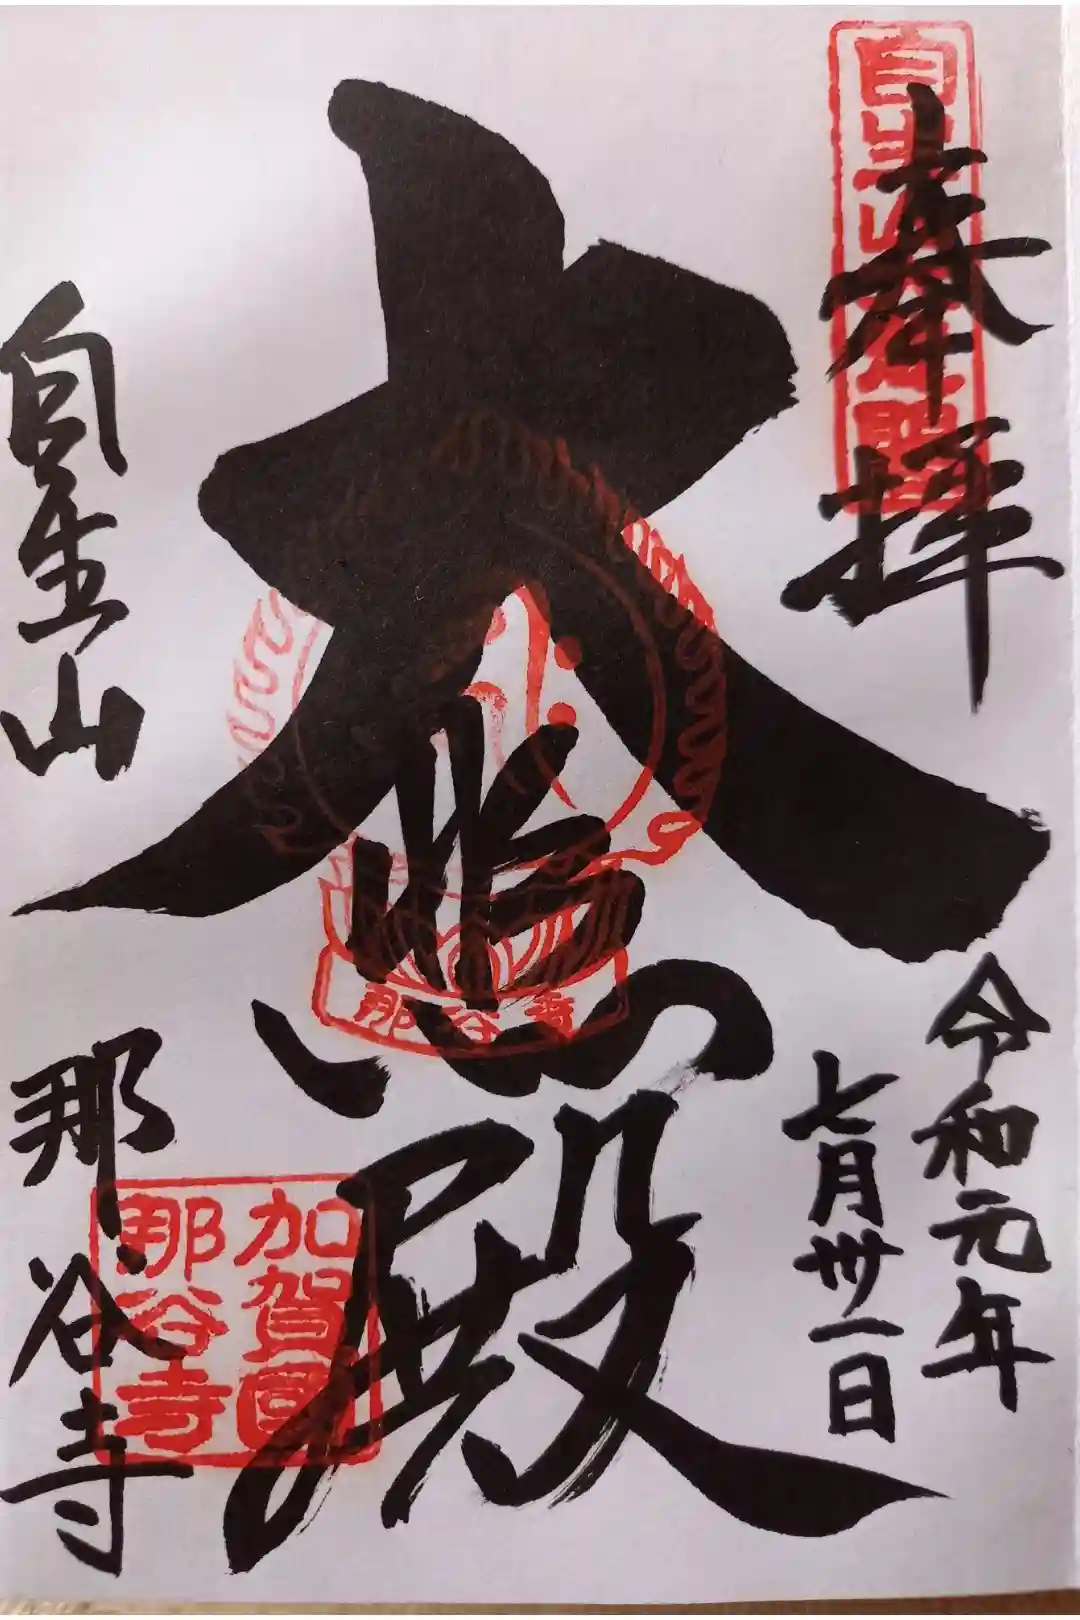 奉拝
令和元年
七月卅一日
大悲殿
那谷寺
自生山
那谷寺
加賀國
那谷寺